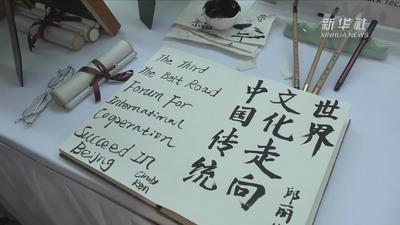 新华社
XINHUA NEWS
The Third
The Belt Road
Forum For
International
Cooperation
Succeed In
Beijng
Cindy
Ren
中国传统
文化走向
世界
邱丽